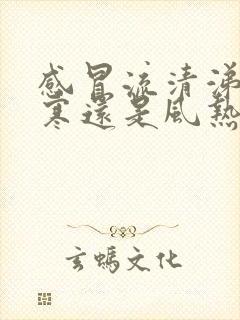 感冒流清涕
寒還是風熱
玄鵭文化